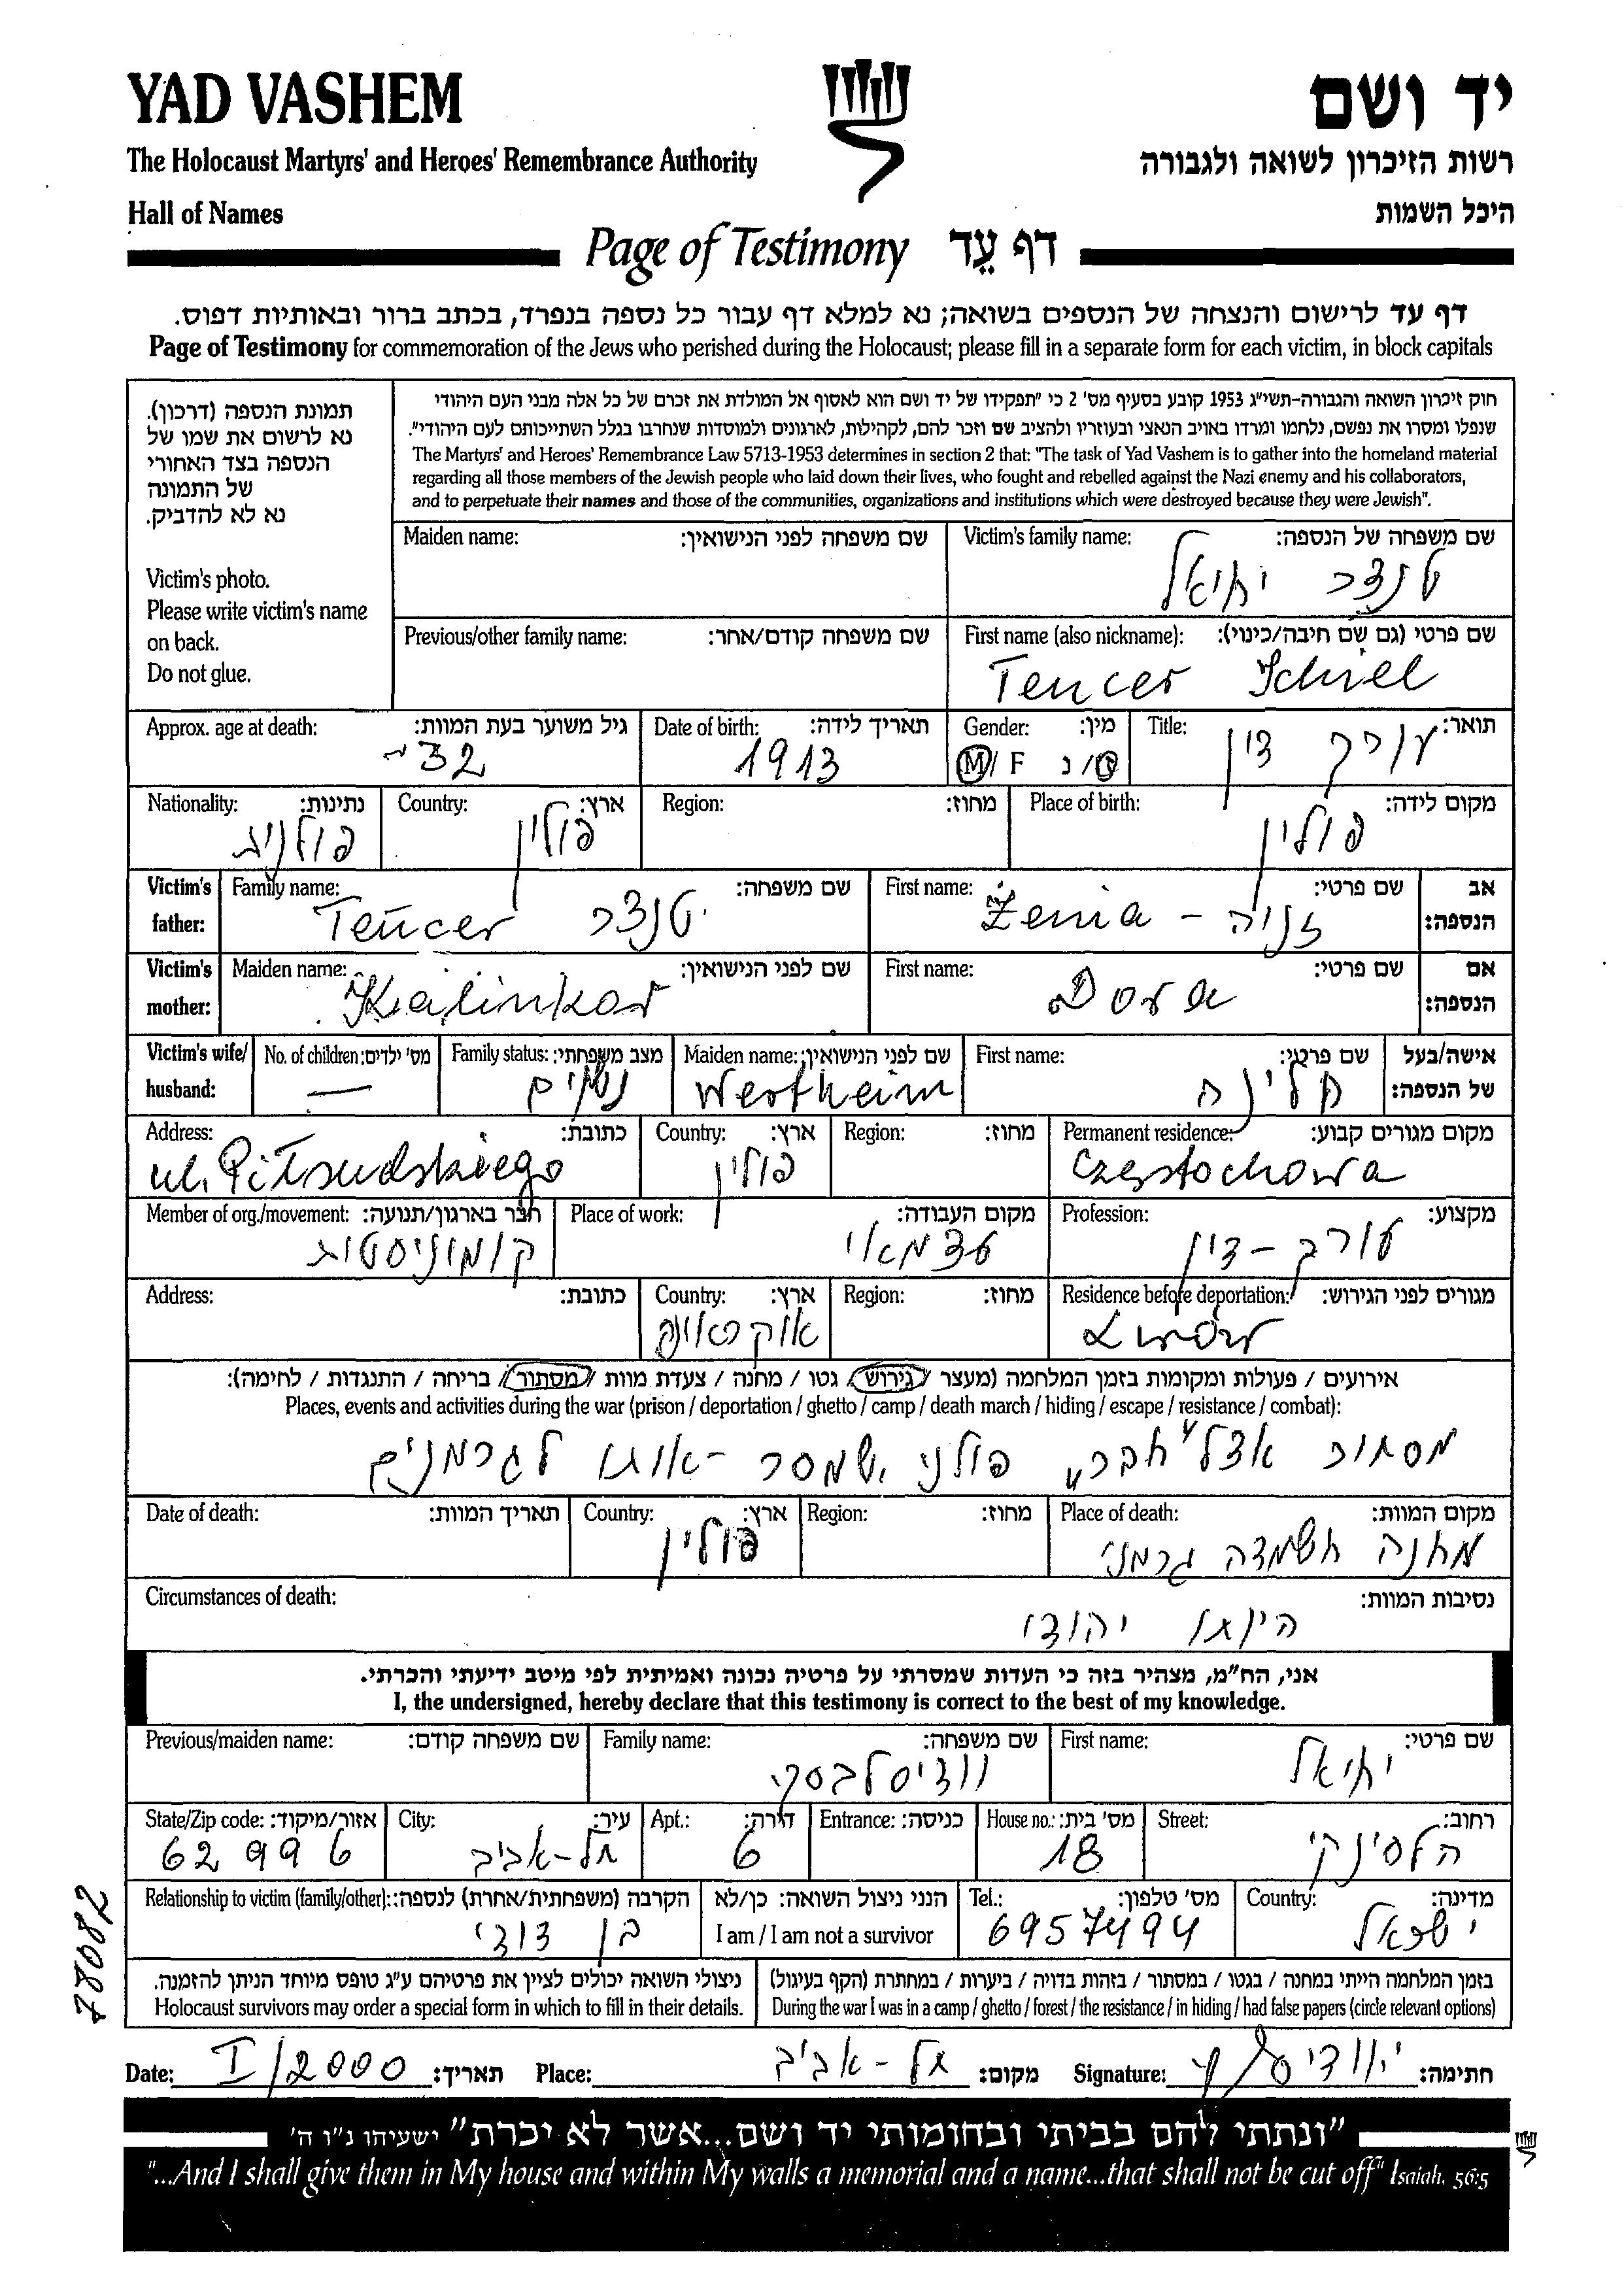 YAD VASHEM
יד ושם
The Holocaust Martyrs' and Heroes' Remembrance Authority
רשות הזיכרון לשואה ולגבורה
Hall of Names
היכל השמות
Page of Testimony דף עֵד
דף עד לרישום והנצחה של הנספים בשואה; נא למלא דף עבור כל נספה בנפרד, בכתב ברור ובאותיות דפוס.
Page of Testimony for commemoration of the Jews who perished during the Holocaust; please fill in a separate form for each victim, in block capitals
תמונת הנספה (דרכון).
נא לרשום את שמו של
הנספה בצד האחורי
של התמונה
נא לא להדביק.
Victim's photo.
Please write victim's name
on back.
Do not glue.
חוק זיכרון השואה והגבורה-תשי"ג 1953 קובע בסעיף מס' 2 כי "תפקידו של יד ושם הוא לאסוף אל המולדת את זכרם של כל אלה מבני העם היהודי
שנפלו ומסרו את נפשם, נלחמו ומרדו באויב הנאצי ובעוזריו ולהציב שם וזכר להם, לקהילות, לארגונים ולמוסדות שנחרבו בגלל השתייכותם לעם היהודי".
The Martyrs' and Heroes' Remembrance Law 5713-1953 determines in section 2 that: "The task of Yad Vashem is to gather into the homeland material
regarding all those members of the Jewish people who laid down their lives, who fought and rebelled against the Nazi enemy and his collaborators,
and to perpetuate their names and those of the communities, organizations and institutions which were destroyed because they were Jewish".
Maiden name: שם משפחה לפני הנישואין:
Victim's family name: שם משפחה של הנספה:
טנצר יחיאל
Previous/other family name: שם משפחה קודם/אחר:
First name (also nickname): שם פרטי (גם שם חיבה/כינוי):
Tencer Ichiel
Approx. age at death: גיל משוער בעת המוות:
~32
Date of birth: תאריך לידה:
1913
Gender: מין:
M / F ז / נ
Title: תואר:
עורך דין
Nationality: נתינות:
פולנית
Country: ארץ:
פולין
Region: מחוז:
Place of birth: מקום לידה:
פולין
Victim's father:
Family name: שם משפחה:
Tencer טנצר
First name: שם פרטי:
Zenia - זניה
אב הנספה:
Victim's mother:
Maiden name: שם לפני הנישואין:
First name: שם פרטי:
Dora
אם הנספה:
Victim's wife/ husband:
No. of children: מס' ילדים:
—
Family status: מצב משפחתי:
Maiden name: שם לפני הנישואין:
Wertheim
First name: שם פרטי:
הלינה
אישה/בעל של הנספה:
Address: כתובת:
ul. Piłsudskiego
Country: ארץ:
פולין
Region: מחוז:
Permanent residence: מקום מגורים קבוע:
Częstochowa
Member of org./movement: חבר בארגון/תנועה:
קומוניסטית
Place of work: מקום העבודה:
עצמאי
Profession: מקצוע:
עורך-דין
Address: כתובת:
Country: ארץ:
Region: מחוז:
Residence before deportation: מגורים לפני הגירוש:
Lwów
אירועים / פעולות ומקומות בזמן המלחמה (מעצר / גירוש / גטו / מחנה / צעדת מוות / מסתור / בריחה / התנגדות / לחימה):
Places, events and activities during the war (prison / deportation / ghetto / camp / death march / hiding / escape / resistance / combat):
מסתור אצל "חבר" פולני, שמסר אותו לגרמנים
Date of death: תאריך המוות:
Country: ארץ:
פולין
Region: מחוז:
Place of death: מקום המוות:
מחנה השמדה גרמני
Circumstances of death: נסיבות המוות:
היותו יהודי
אני, הח"מ, מצהיר בזה כי העדות שמסרתי על פרטיה נכונה ואמיתית לפי מיטב ידיעתי והכרתי.
I, the undersigned, hereby declare that this testimony is correct to the best of my knowledge.
Previous/maiden name: שם משפחה קודם:
Family name: שם משפחה:
וודיסלבסקי
First name: שם פרטי:
יחיאל
State/Zip code: אזור/מיקוד:
62996
City: עיר:
תל-אביב
Apt.: דירה:
6
Entrance: כניסה:
House no.: מס' בית:
18
Street: רחוב:
הלסינקי
Relationship to victim (family/other): הקרבה (משפחתית/אחרת) לנספה:
בן דודי
הנני ניצול השואה: כן/לא
I am / I am not a survivor
Tel.: מס' טלפון:
6957494
Country: מדינה:
ישראל
ניצולי השואה יכולים לציין את פרטיהם ע"ג טופס מיוחד הניתן להזמנה.
Holocaust survivors may order a special form in which to fill in their details.
בזמן המלחמה הייתי במחנה / בגטו / במסתור / בזהות בדויה / ביערות / במחתרת (הקף בעיגול)
During the war I was in a camp / ghetto / forest / the resistance / in hiding / had false papers (circle relevant options)
78082
Date: I/2000 תאריך: Place: תל-אביב מקום: Signature: חתימה:
"ונתתי להם בביתי ובחומותי יד ושם...אשר לא יכרת" ישעיהו נ"ו ה'
"...And I shall give them in My house and within My walls a memorial and a name...that shall not be cut off" Isaiah, 56:5